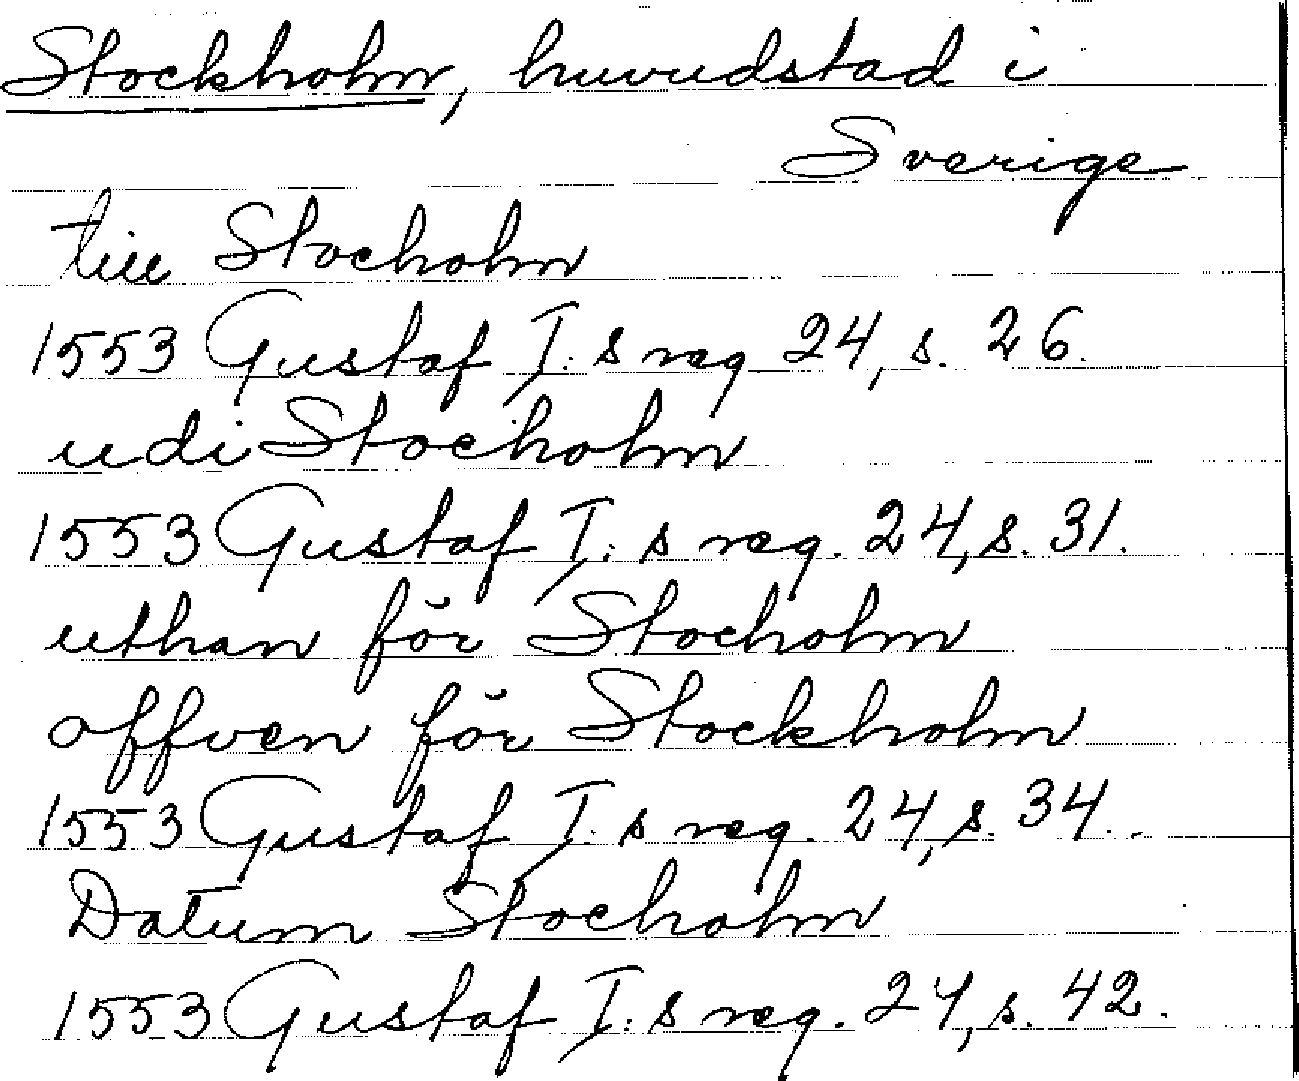 Stockholm, huvudstad i
Sverige
till Stocholm
1553 Gustaf I: s reg 24, s. 26.
udi Stocholm
1553 Gustaf I: s reg. 24, s. 31.
uthan för Stocholm
offven för Stockholm
1553 Gustaf I: s reg. 24, s. 34.
Datum Stocholm
1553 Gustaf I: s reg. 24, s. 42.